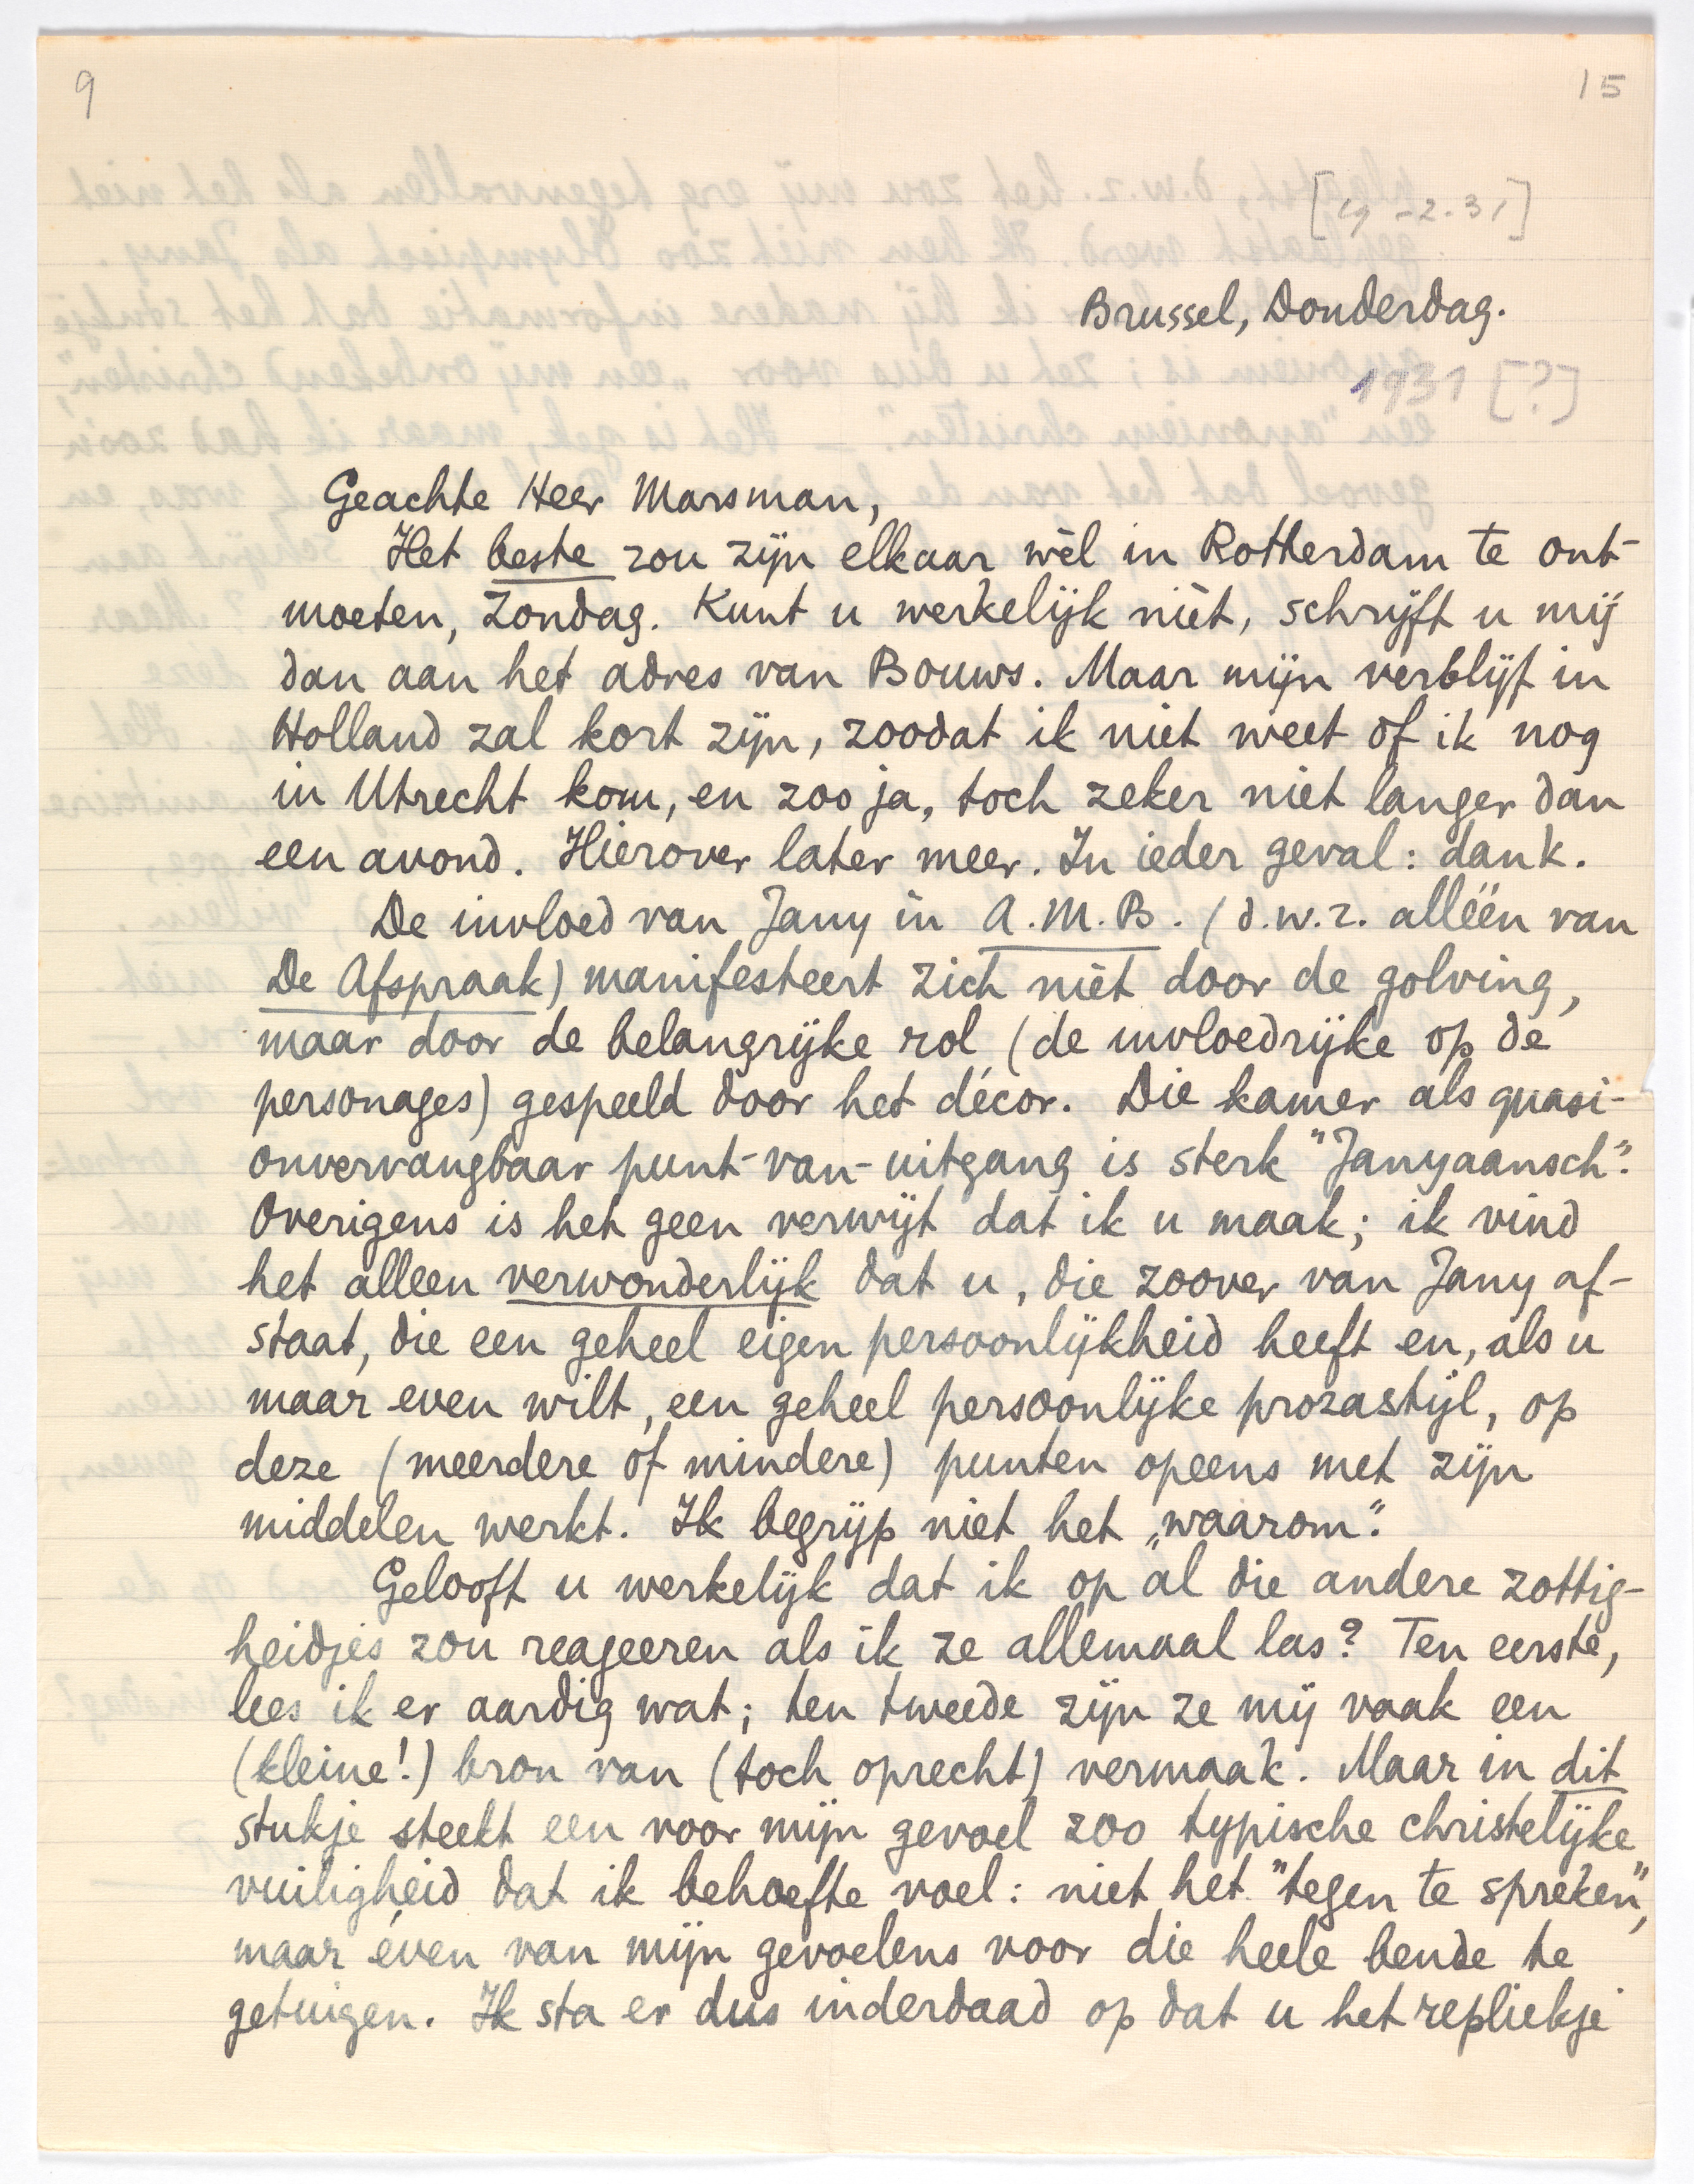 9
15
[19-2-31]
Brussel, Donderdag.
1931 [?]
Geachte Heer Marsman,
Het beste zou zijn elkaar wèl in Rotterdam te ont-
moeten, Zondag. Kunt u werkelijk niet, schrijft u mij
dan aan het adres van Bouws. Maar mijn verblijf in
Holland zal kort zijn, zoodat ik niet weet of ik nog
in Utrecht kom, en zoo ja, toch zeker niet langer dan
een avond. Hierover later meer. In ieder geval: dank.
De invloed van Jany in A.M.B. (d.w.z. alléén van
De Afspraak) manifesteert zich niet door de golving,
maar door de belangrijke rol (de invloedrijke op de
personages) gespeeld door het décor. Die kamer als quasi-
onvervangbaar punt-van-uitgang is sterk "Janyaansch".
Overigens is het geen verwijt dat ik u maak; ik vind
het alleen verwonderlijk dat u, die zoover van Jany af-
staat, die een geheel eigen persoonlijkheid heeft en, als u
maar even wilt, een geheel persoonlijke prozastijl, op
deze (meerdere of mindere) punten opeens met zijn
middelen werkt. Ik begrijp niet het „waarom".
Gelooft u werkelijk dat ik op al die andere zottig-
heidjes zou reageeren als ik ze allemaal las? Ten eerste,
lees ik er aardig wat; ten tweede zijn ze mij vaak een
(kleine!) bron van (toch oprecht) vermaak. Maar in dit
stukje steekt een voor mijn gevoel zoo typische christelijke
vuiligheid dat ik behoefte voel: niet het "tegen te spreken",
maar éven van mijn gevoelens voor die heele bende te
getuigen. Ik sta er dus inderdaad op dat u het repliekje